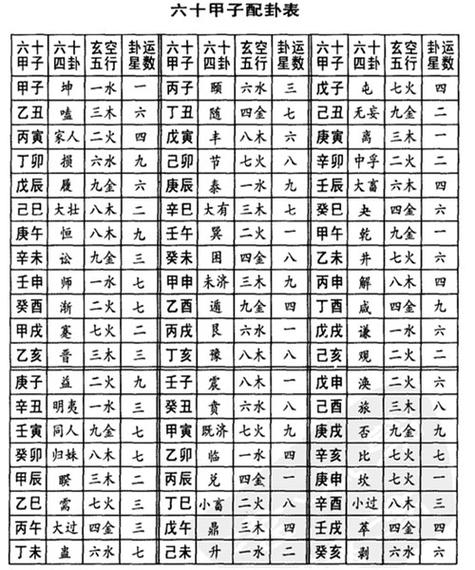 六十甲子配卦表
六十甲子 六十四卦 玄空五行 卦运星数 六十甲子 六十四卦 玄空五行 卦运星数 六十甲子 六十四卦 玄空五行 卦运星数
甲子 坤 一水 一 丙子 颐 六水 三 戊子 屯 七火 四
乙丑 嗑 三木 六 丁丑 随 四金 七 己丑 无妄 九金 二
丙寅 家人 二火 四 戊寅 丰 八木 六 庚寅 离 三木 一
丁卯 损 六水 九 己卯 节 七火 八 辛卯 中孚 二火 二
戊辰 履 九金 六 庚辰 泰 一水 九 壬辰 大畜 六木 四
己巳 大壮 八木 二 辛巳 大有 三木 七 癸巳 夬 四金 六
庚午 恒 八木 九 壬午 巽 二火 一 甲午 乾 九金 一
辛未 讼 九金 三 癸未 困 四金 八 乙未 井 七火 六
壬申 师 一水 七 甲申 未济 三木 九 丙申 解 八木 四
癸酉 渐 二火 七 乙酉 遁 九金 四 丁酉 咸 四金 九
甲戌 蹇 七火 二 丙戌 艮 六水 一 戊戌 谦 一水 六
乙亥 晋 三木 三 丁亥 豫 八木 八 己亥 观 二火 二
庚子 益 二火 九 壬子 震 八木 一 戊申 涣 二火 六
辛丑 明夷 一水 三 癸丑 贲 六水 八 己酉 旅 三木 八
壬寅 同人 九金 七 甲寅 既济 七火 九 庚戌 否 九金 九
癸卯 归妹 八木 七 乙卯 临 一水 四 辛亥 比 七火 七
甲辰 睽 三木 二 丙辰 兑 四金 一 庚申 坎 七火 一
乙巳 需 七火 三 丁巳 小畜 二火 八 辛酉 小过 八木 三
丙午 大过 四金 三 戊午 鼎 三木 四 壬戌 萃 四金 四
丁未 蛊 六水 七 己未 升 一水 二 癸亥 剥 六水 六